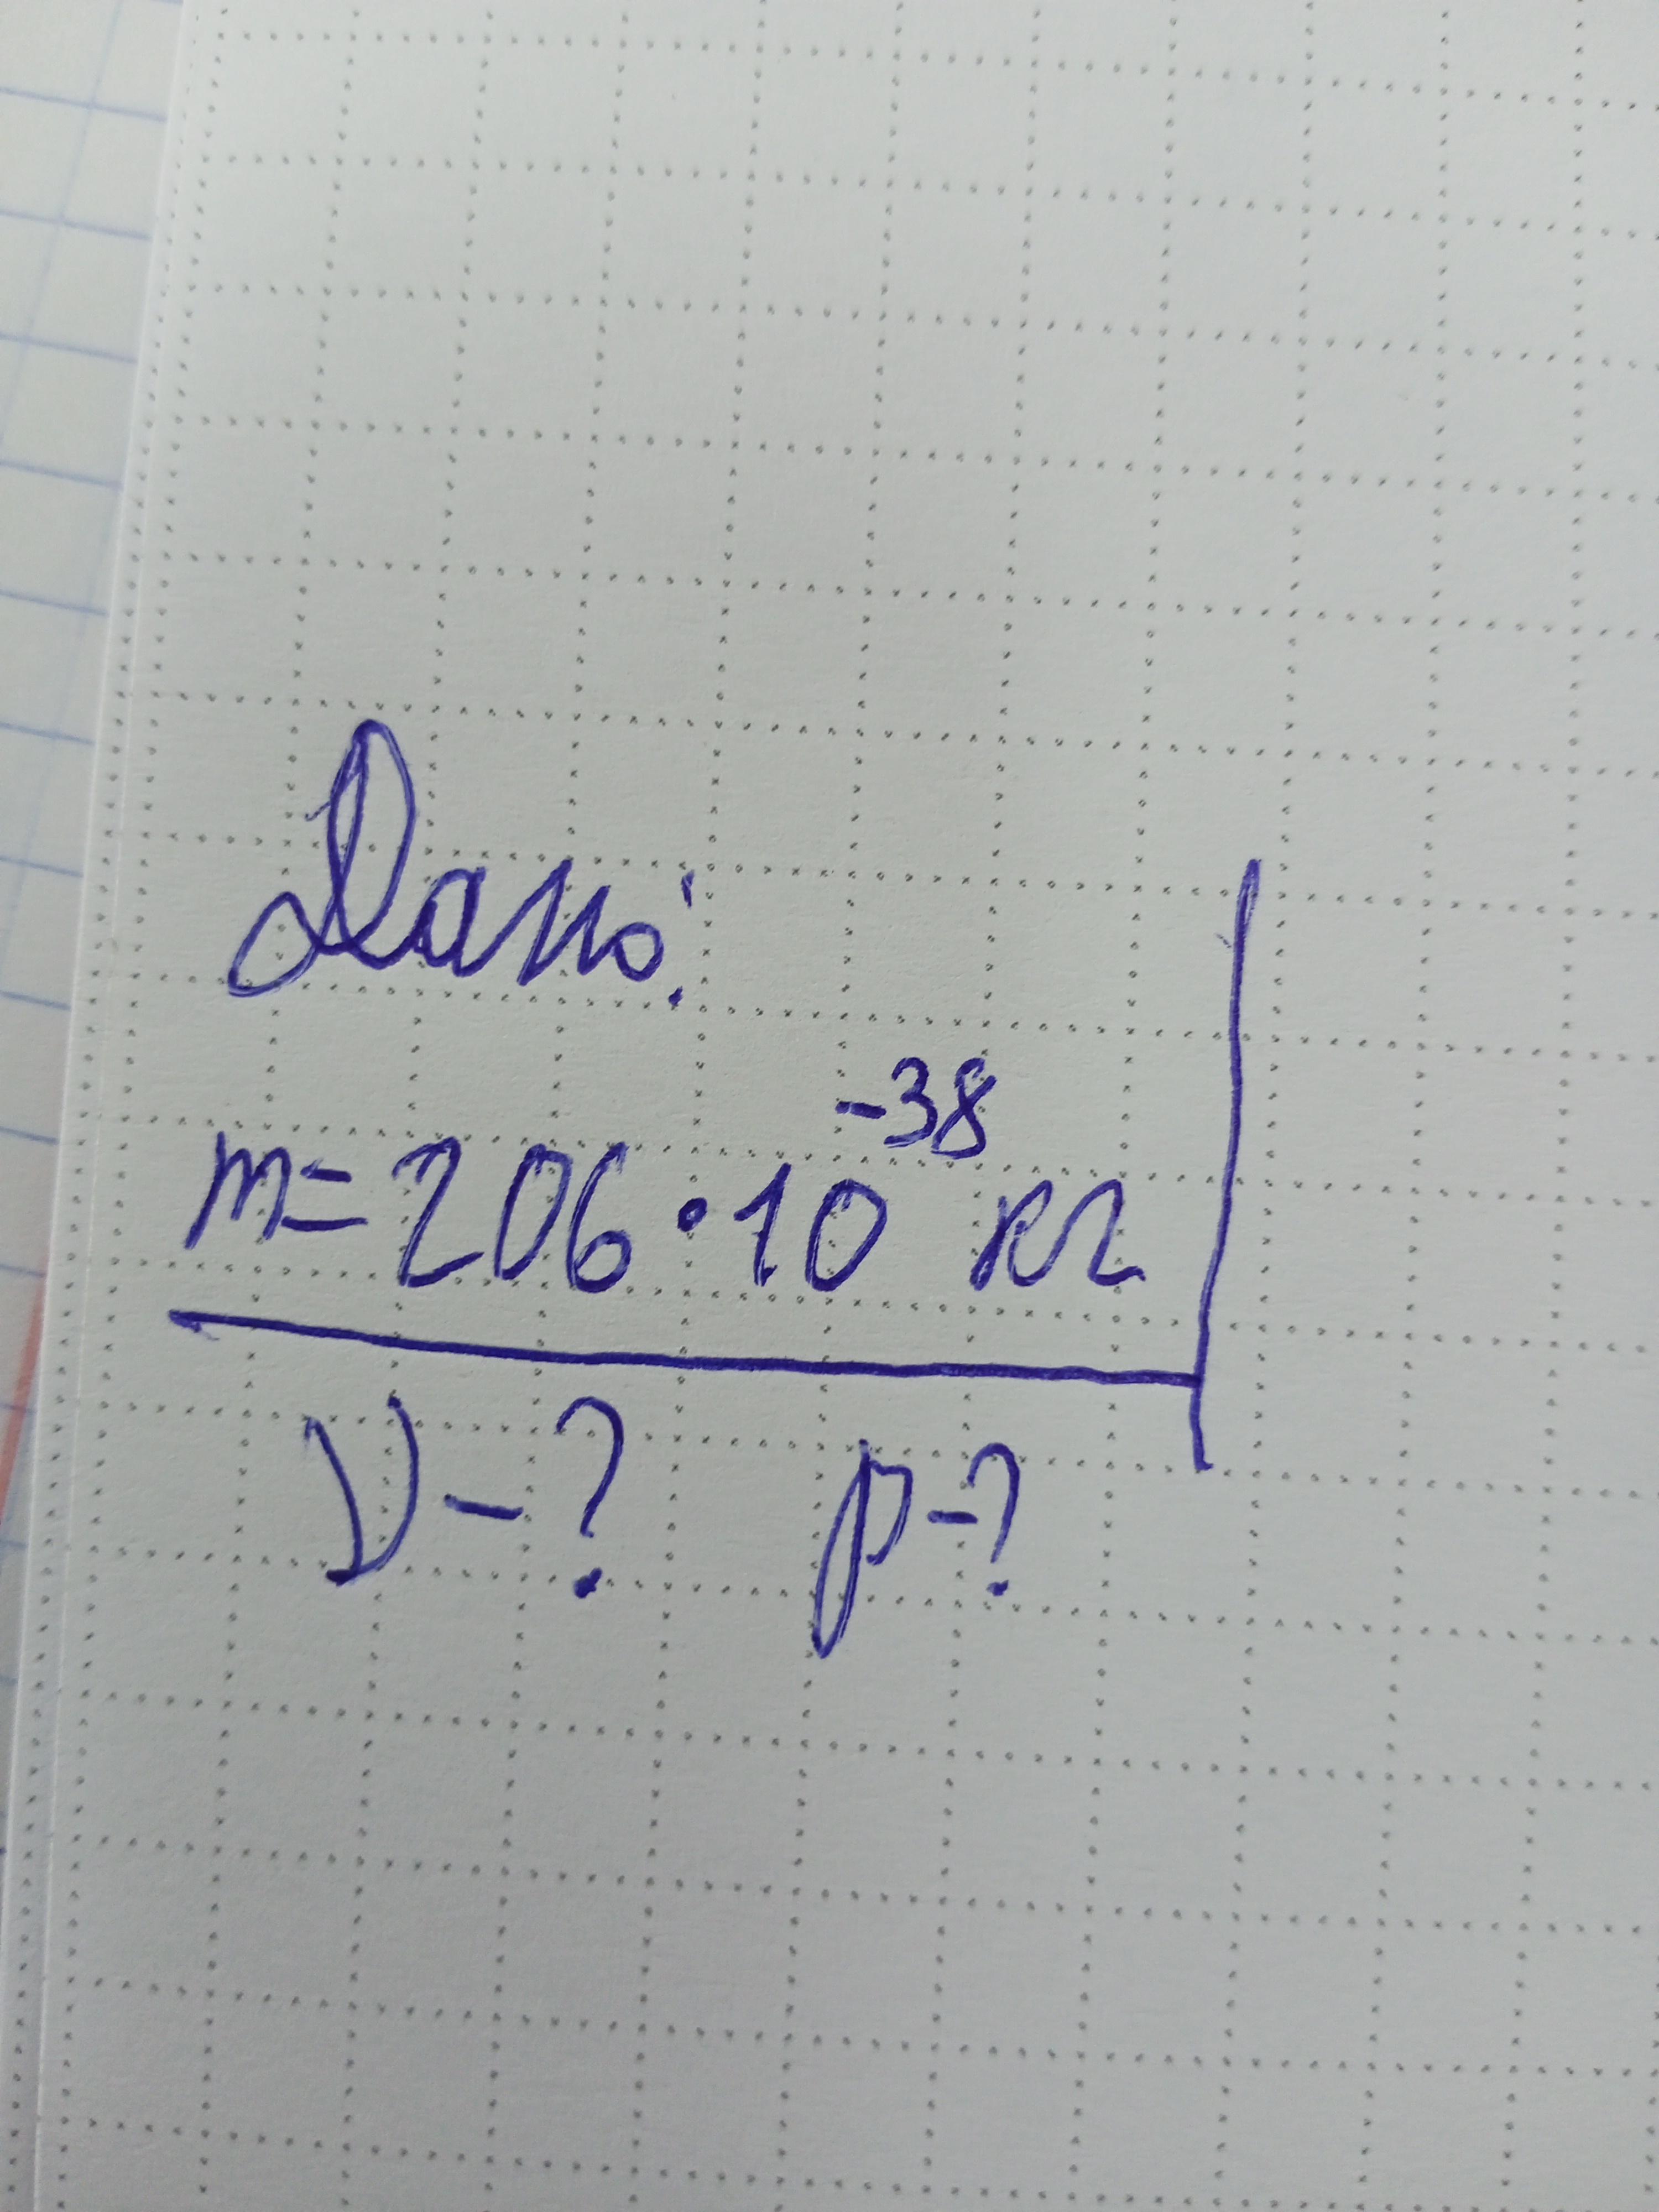 Дано:
m = 206 · 10⁻³⁸ кг
ν - ? p - ?